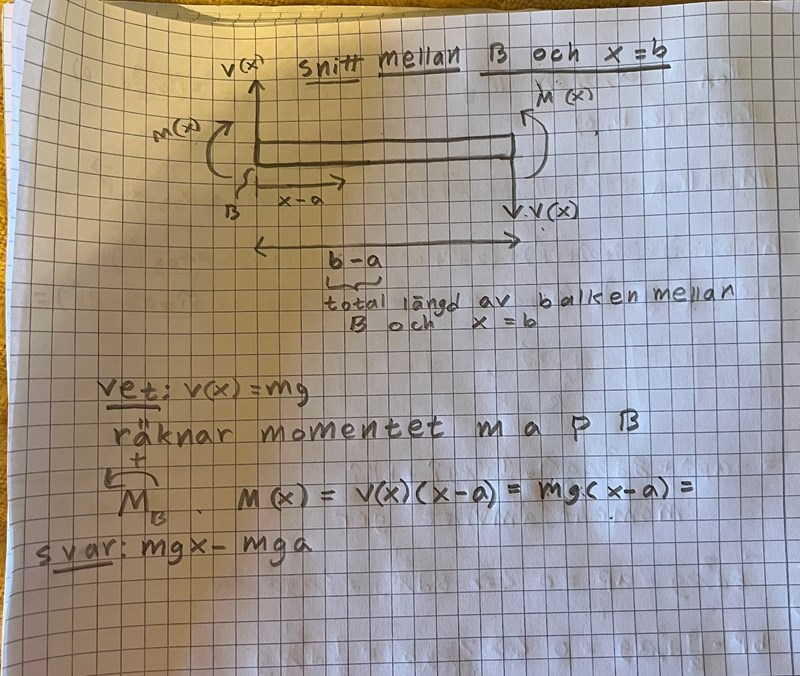 V(x) snitt mellan B och x = b
M(x)
M(x)
B
x-a
V(x)
b-a
total längd av balken mellan
B och x = b
vet: V(x) = mg
räknar momentet m a p B
+
M_B . M(x) = V(x)(x-a) = mg(x-a) =
svar: mgx - mga